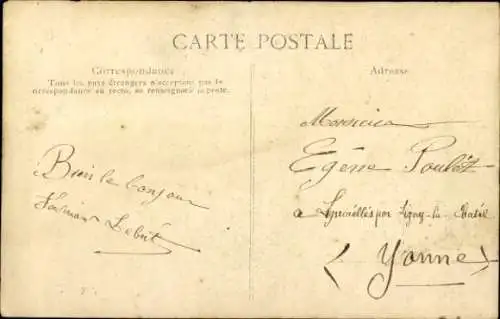 CARTE POSTALE
Correspondance
Tous les pays étrangers n'acceptent pas la
correspondance au recto, se renseigner à la poste.
Adresse
Bien le bonjour
Lebét
Monsieur
Egène Poulet
a par Ligny-le-Chatel
(Yonne)